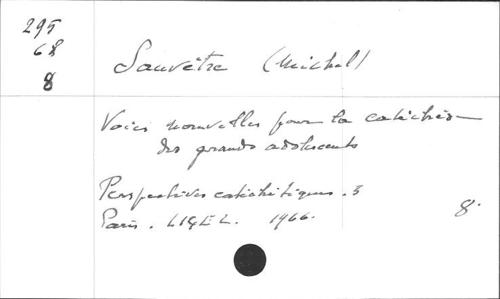 295
68
8
Sauvêtre (Michel)
Voies nouvelles pour la catéchèse
des grands adolescents
Perspectives catéchétiques. 3
Paris. LIGEL. 1966. 8.